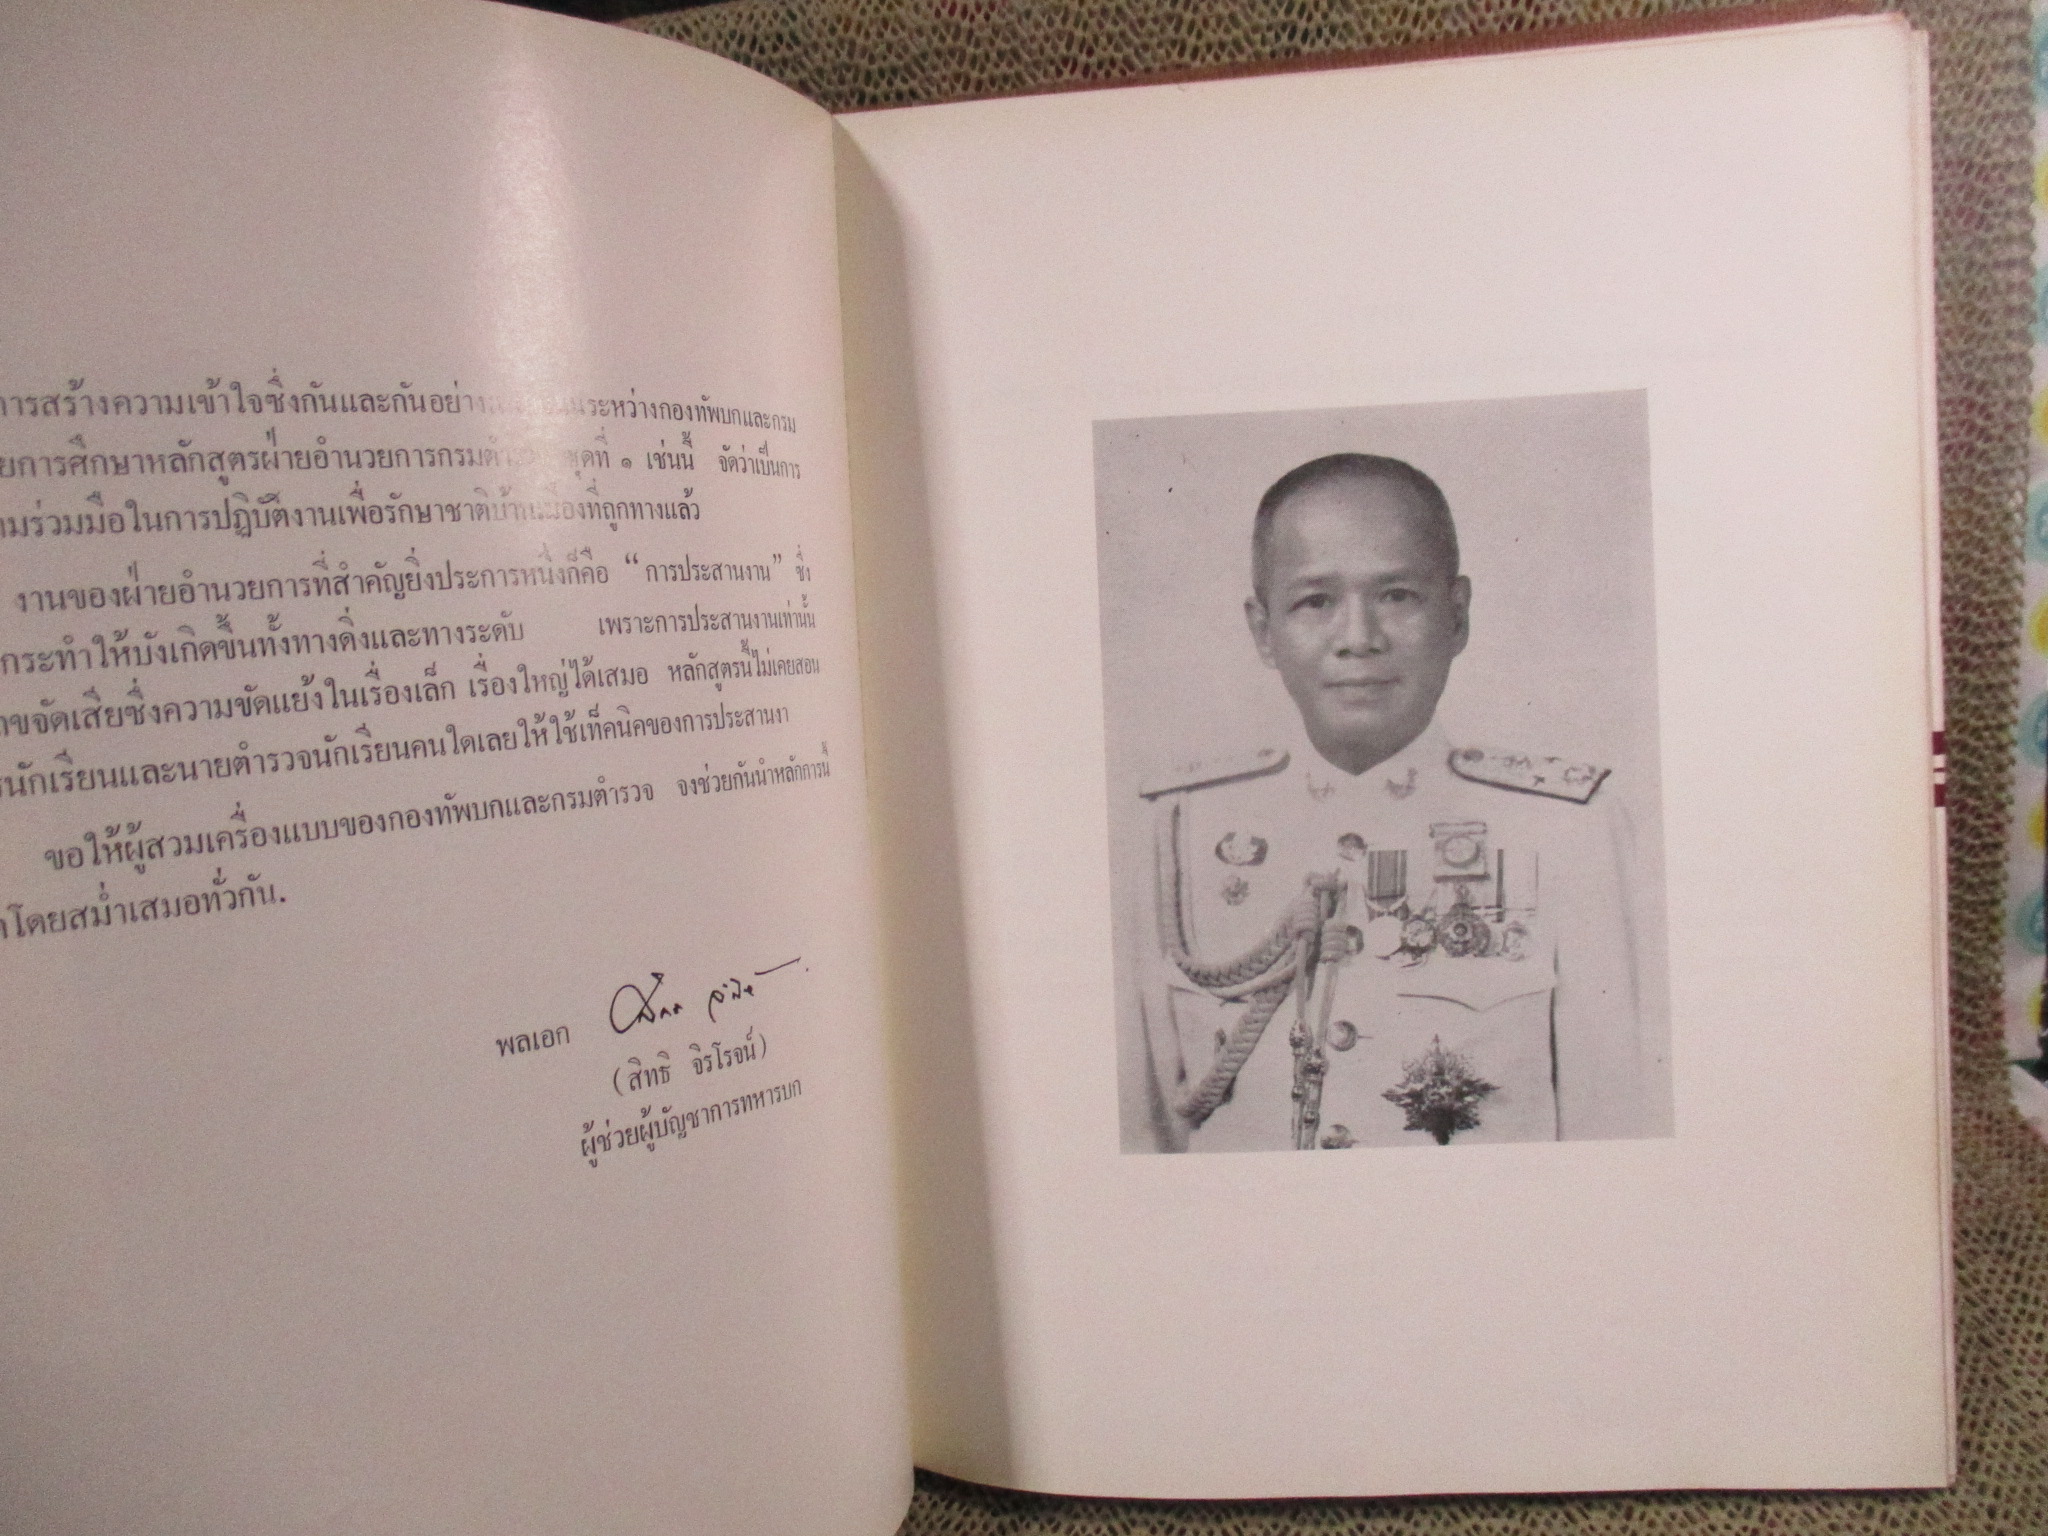 การสร้างความเข้าใจซึ่งกันและกันอย่าง ระหว่างกองทัพบกและกรม
ยการศึกษาหลักสูตรฝ่ายอำนวยการกรมตำรวจ ชุดที่ ๑ เช่นนี้ จัดว่าเป็นการ
ามร่วมมือในการปฏิบัติงานเพื่อรักษาชาติบ้านเมืองที่ถูกทางแล้ว
งานของฝ่ายอำนวยการที่สำคัญยิ่งประการหนึ่งก็คือ “การประสานงาน” ซึ่ง
กระทำให้บังเกิดขึ้นทั้งทางดิ่งและทางระดับ เพราะการประสานงานเท่านั้น
ขจัดเสียซึ่งความขัดแย้งในเรื่องเล็ก เรื่องใหญ่ได้เสมอ หลักสูตรนี้ไม่เคยสอน
นักเรียนและนายตำรวจนักเรียนคนใดเลยให้ใช้เท็คนิคของการประสานงา
ขอให้ผู้สวมเครื่องแบบของกองทัพบกและกรมตำรวจ จงช่วยกันนำหลักการนี้
โดยสม่ำเสมอทั่วกัน.
พลเอก
(สิทธิ จิรโรจน์)
ผู้ช่วยผู้บัญชาการทหารบก